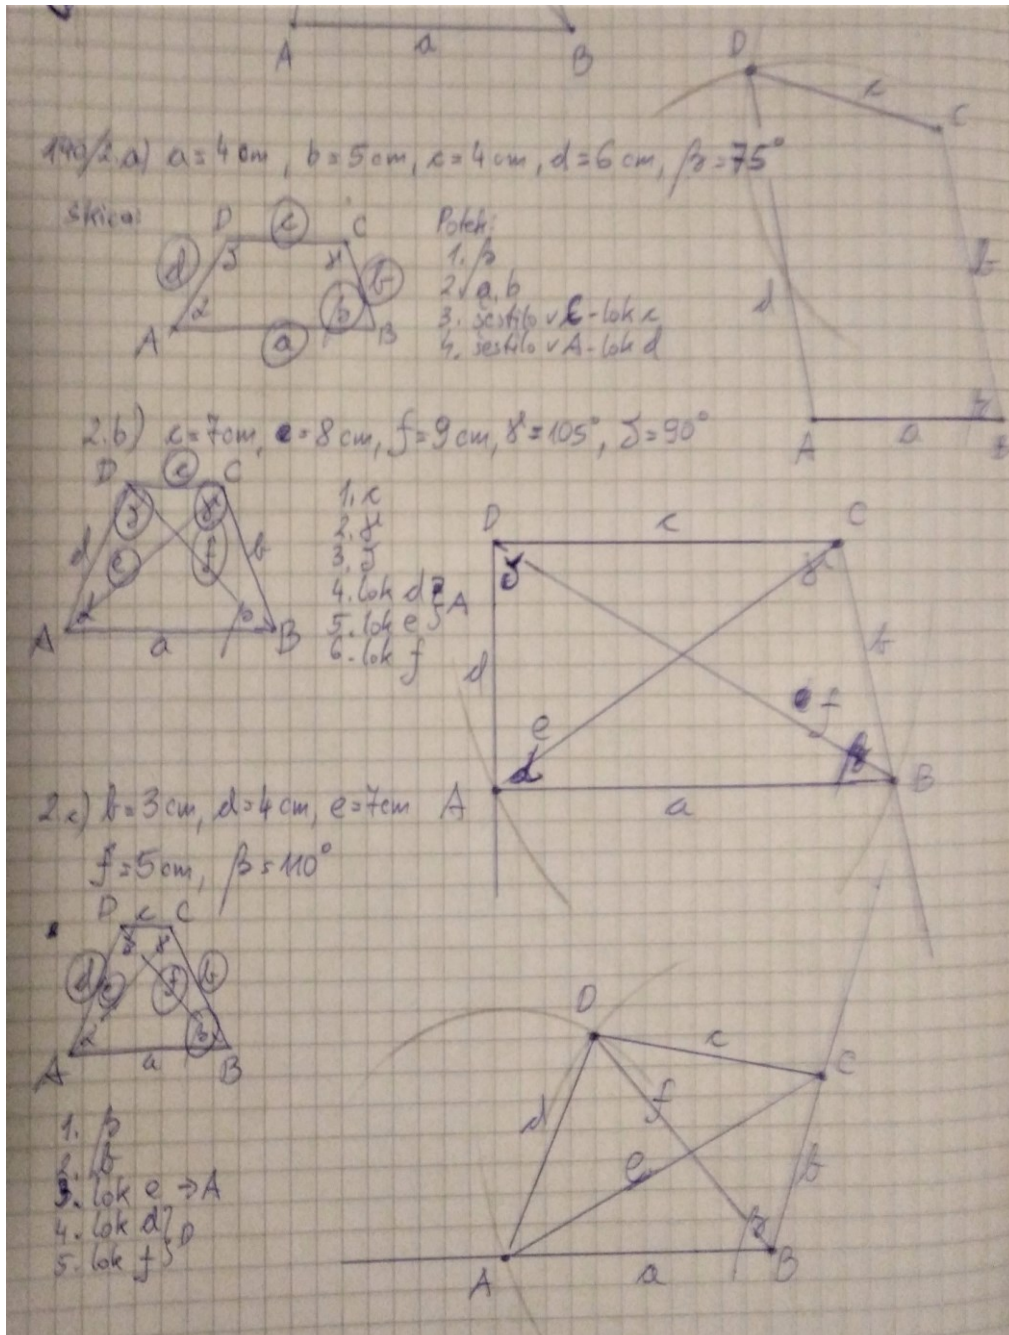 A a B
140/2.a) a=4cm, b=5cm, c=4cm, d=6cm, β=75°
skica:
D c C
d δ γ b
α β
A a B
Potek:
1. β
2. a, b
3. šestilo v C - lok c
4. šestilo v A - lok d
D c C
d b
β
A a B
2.b) c=7cm, e=8cm, f=9cm, γ=105°, δ=90°
D c C
δ γ
d e f b
α β
A a B
1. c
2. γ
3. δ
4. lok d } A
5. lok e
6. lok f
D c C
δ γ
d b
e f
α β
A a B
2.c) b=3cm, d=4cm, e=7cm
f=5cm, β=110°
D c C
δ γ
d e f b
α β
A a B
1. β
2. b
3. lok e → A
4. lok d } D
5. lok f
D c C
d f
e b
β
A a B